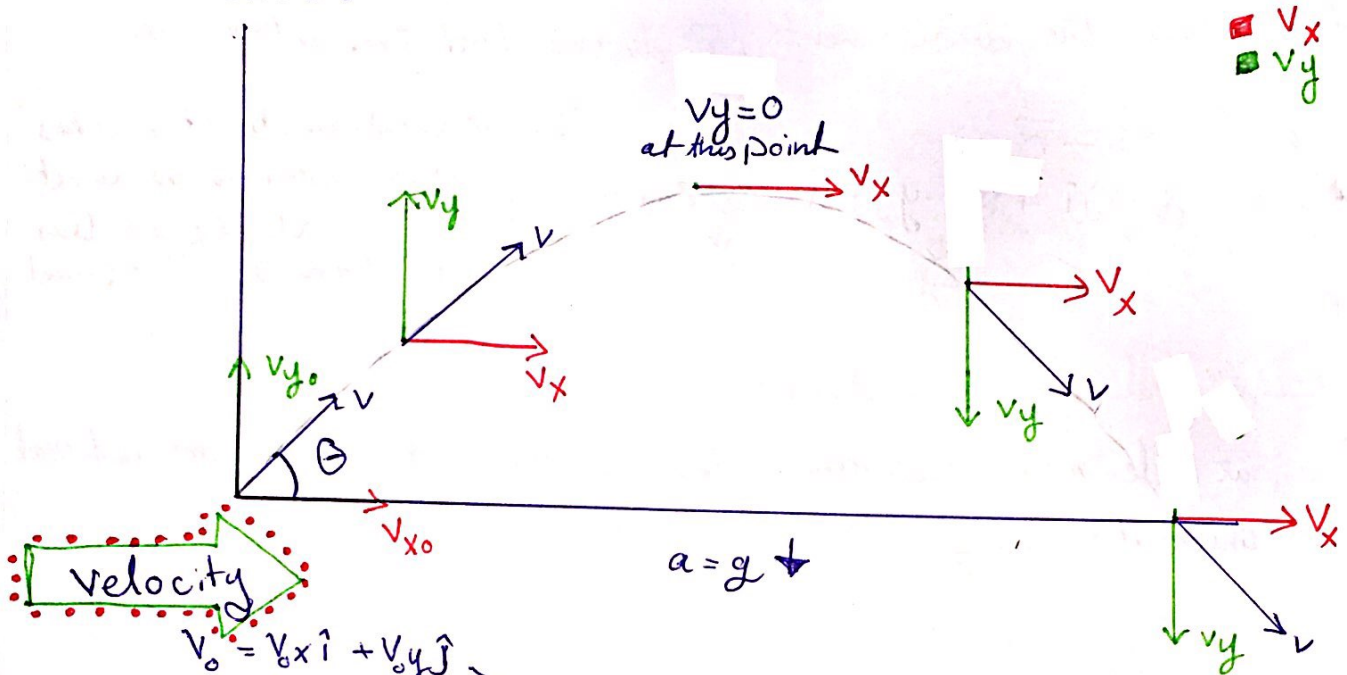 Vx
Vy
Vy=0
at this point
Vx
Vy
V
Vx
Vx
V
Vy
Vy₀
V
θ
Vx₀
Vx
V
Vy
a = g ↓
velocity
V₀ = V₀x î + V₀y ĵ